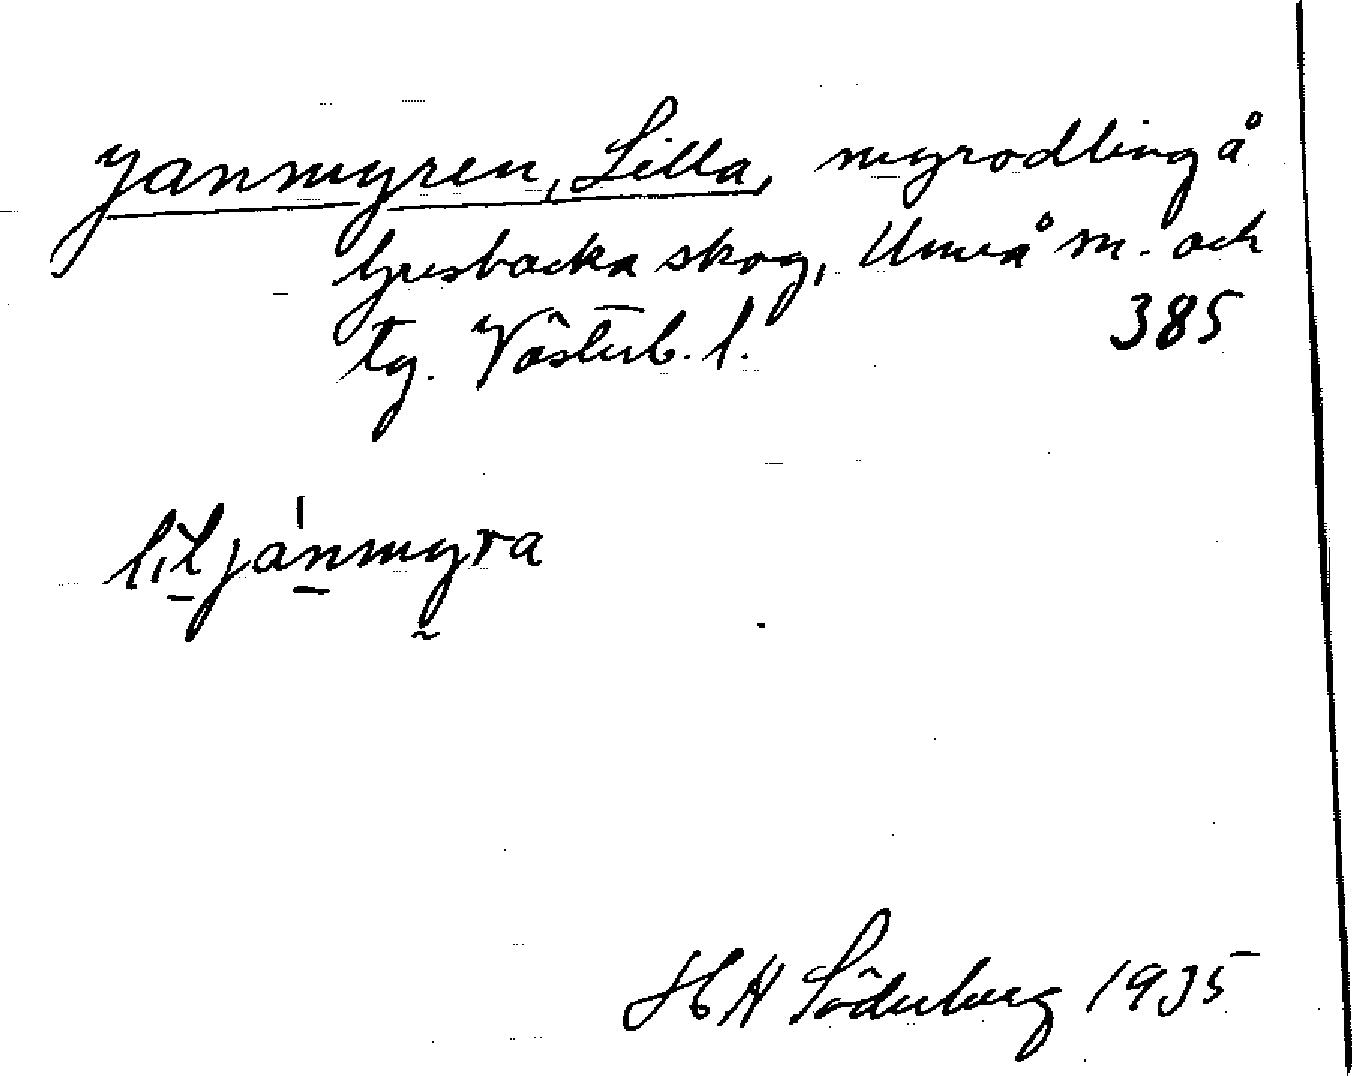 Janmyren, Lilla, myrodling å
ljusbacka skog, Umeå m. och
tg. Västerb. l. 385
liljanmyra
H A Söderberg 1935